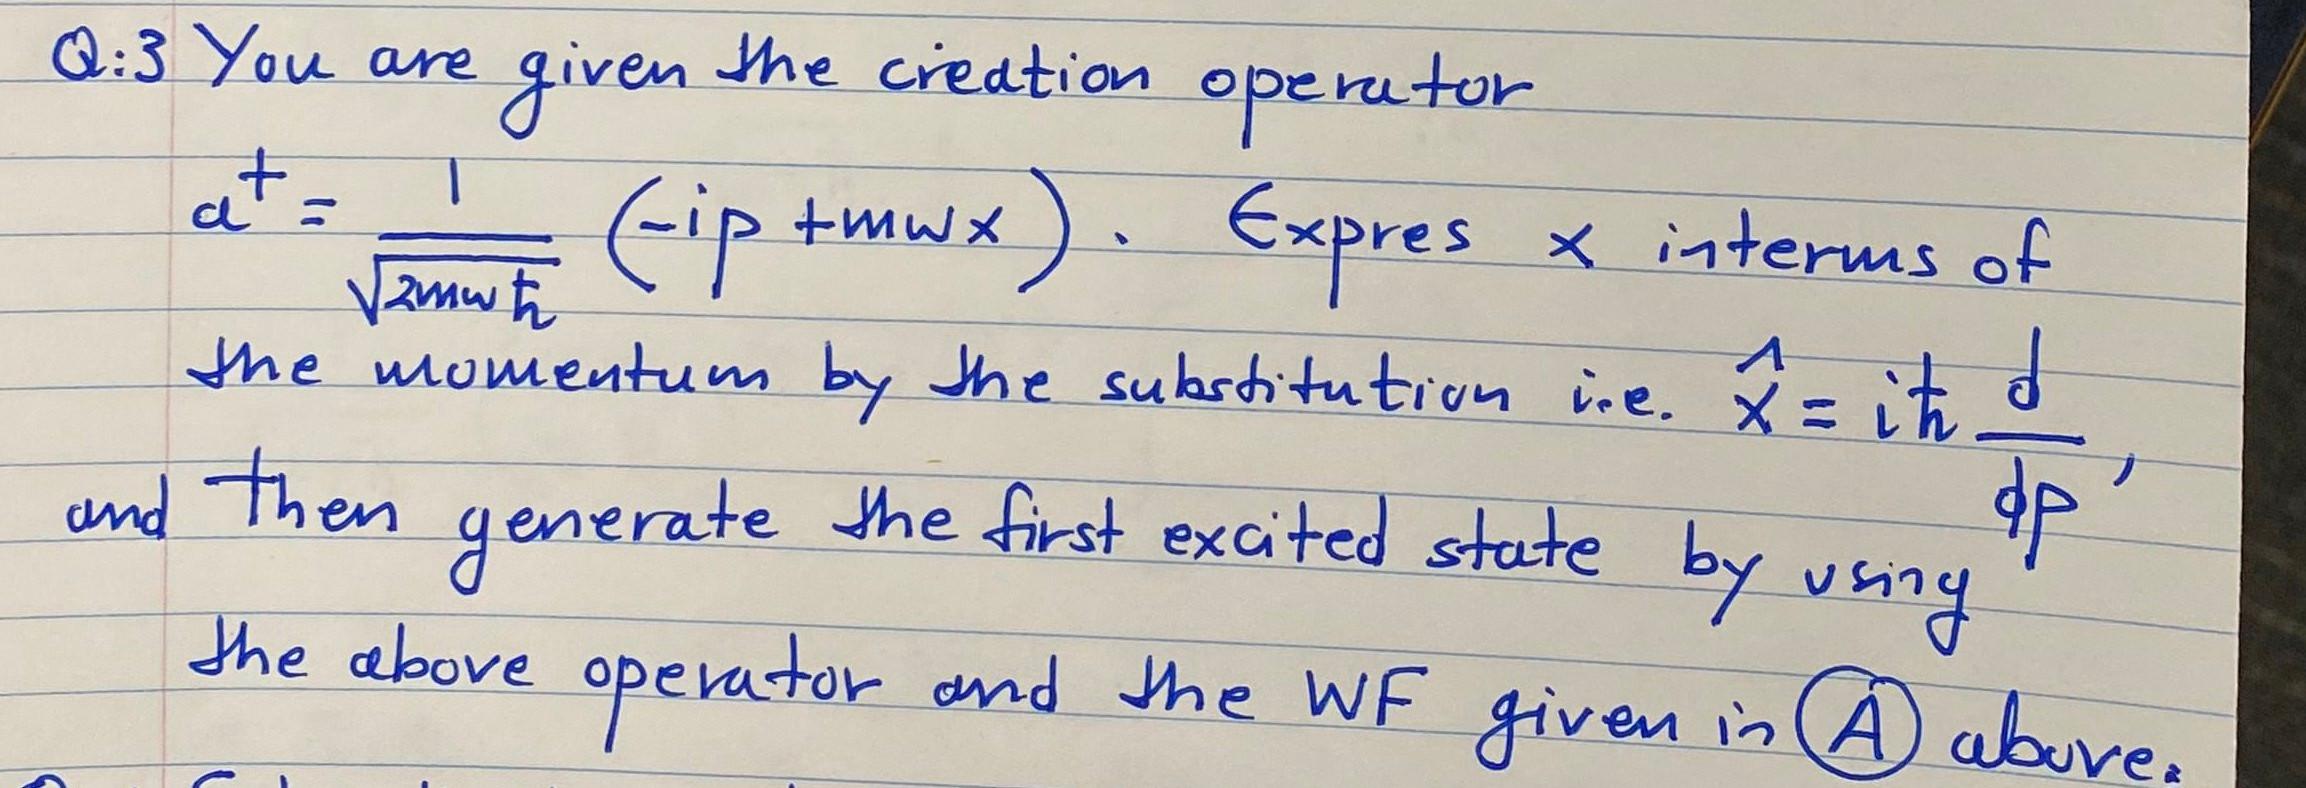 Q:3 You are given the creation operator
a† = 1/√2mωħ (-ip + mωx). Expres x interms of
the momentum by the substitution i.e. x̂ = iħ d/dp,
and then generate the first excited state by using
the above operator and the WF given in Ⓐ above.